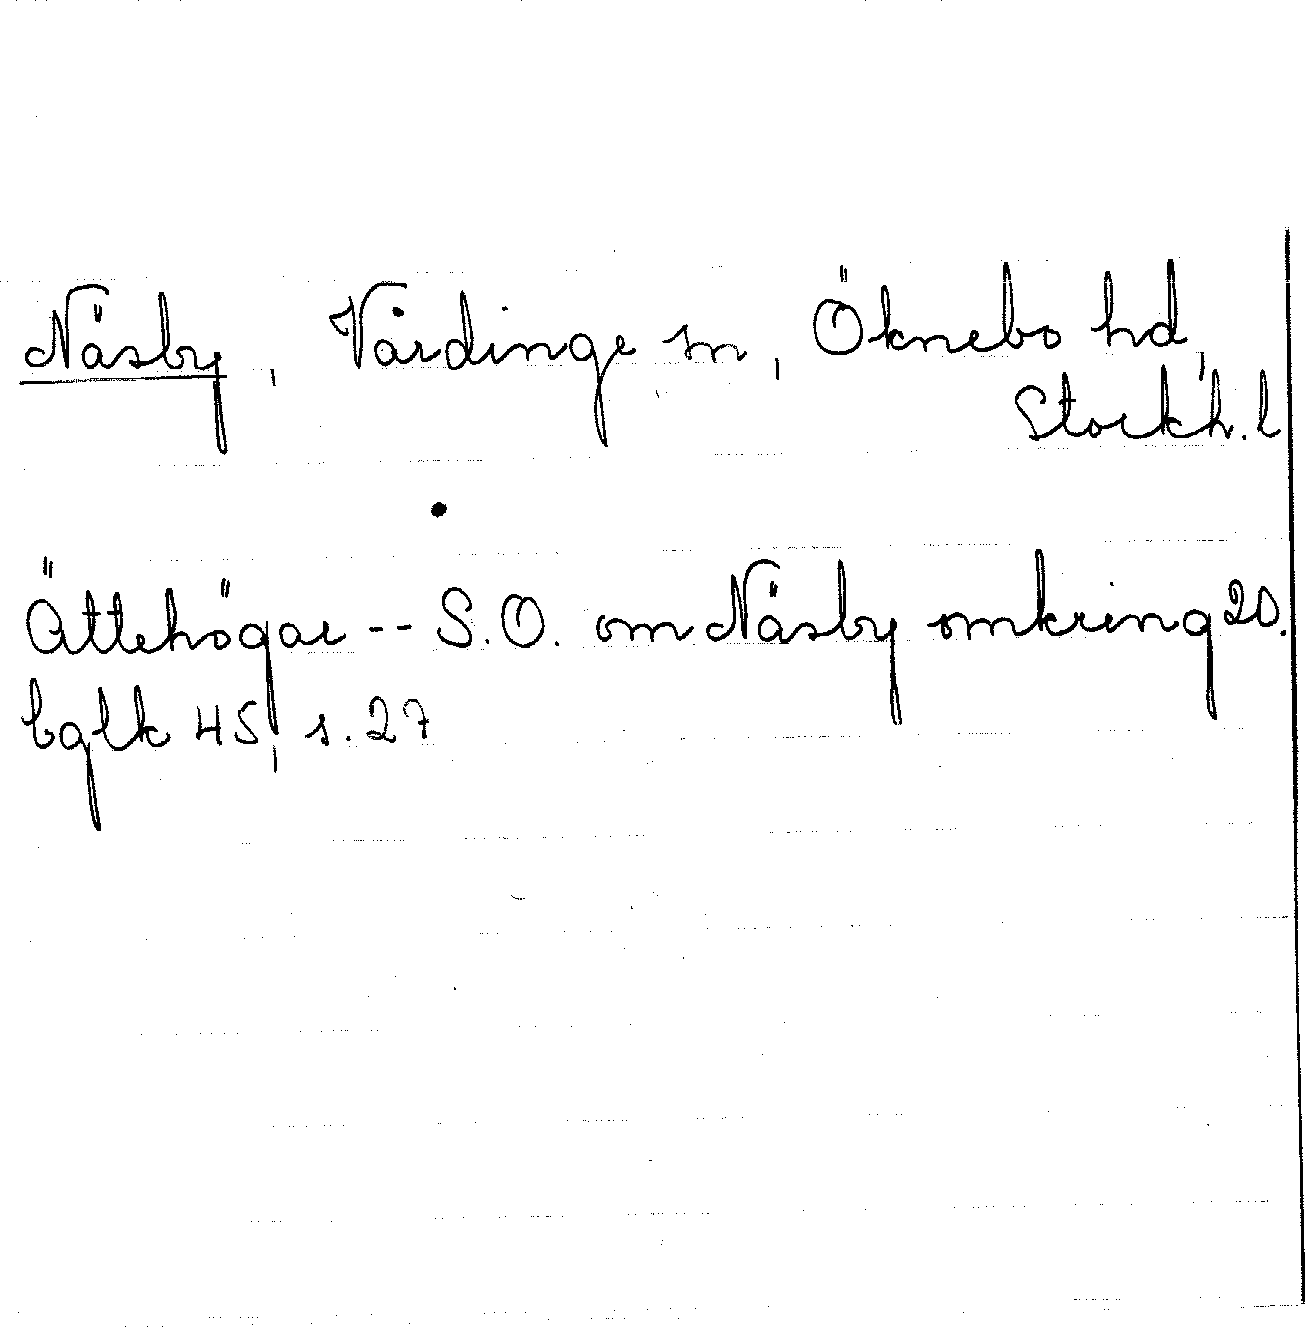 Näsby, Vårdinge sn, Öknebo hd,
Stockh. l
Ättehögar -- S.O. om Näsby omkring 20.
bglk 45, s. 27